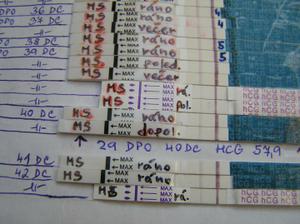 DPO 36 DC MS MAX ráno 4
37 DC MS MAX ráno 4
-II- MS MAX večer
DPO 38 DC MS MAX ráno 5
39 DC MS MAX ráno 5
-II- MS MAX poled.
-II- MS MAX večer
MS MAX rá. hCG hCG hCG
-II- MS MAX pol. hCG hCG hCG
40 DC MS MAX ráno
-II- MS MAX dopol.
↑ 29 DPO 40DC HCG 57,9
41 DC MS MAX ráno hCG hCG hCG
42 DC MS MAX ráno hCG hCG hCG
-II- MS MAX rá. hCG hCG hCG